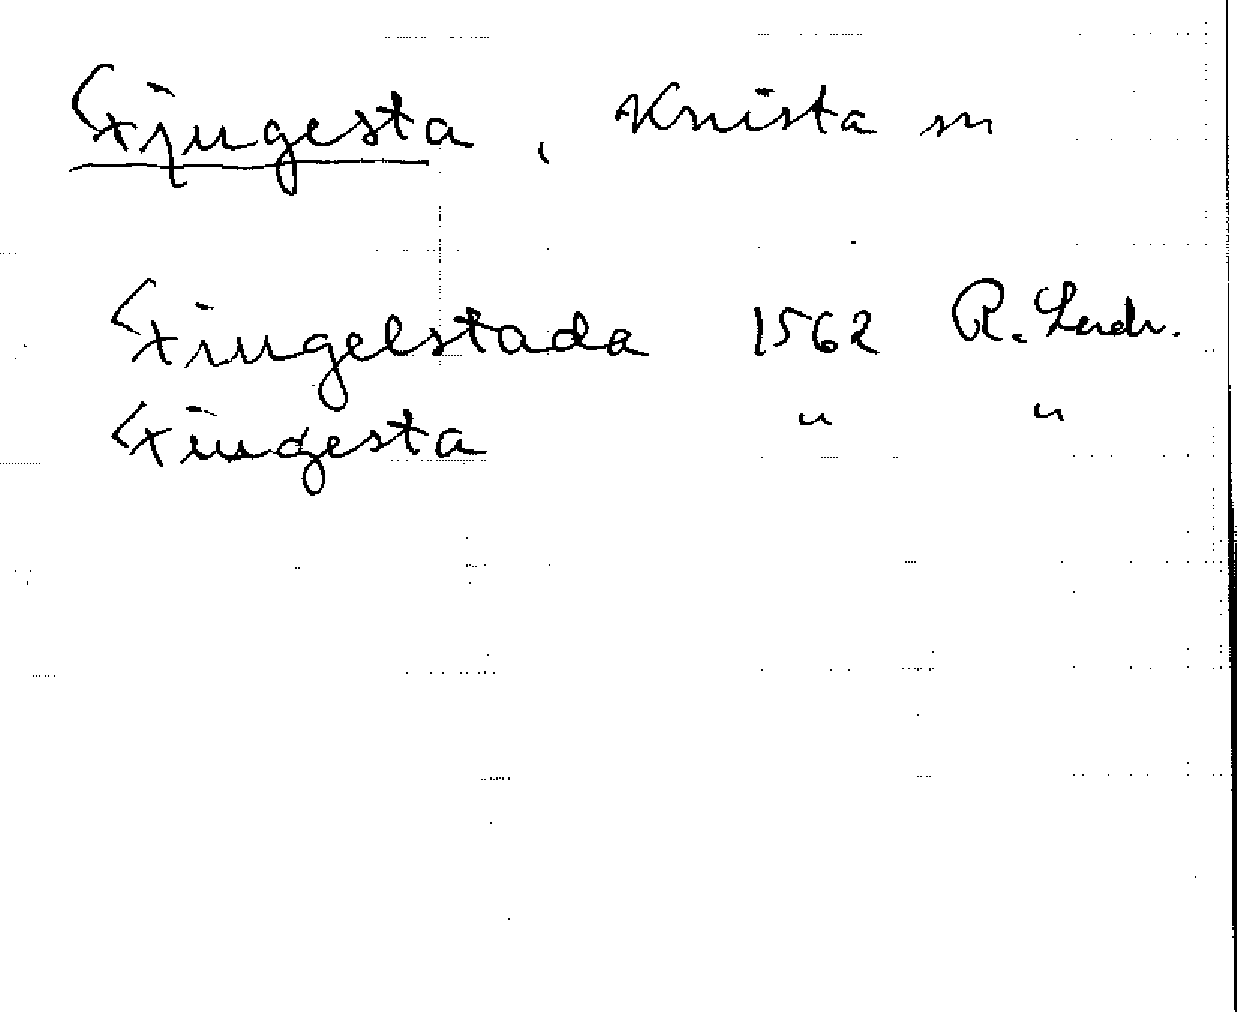 Fjugesta, Knista sn
Fiugelstada 1562 R. Lerdr.
Fiugesta " "